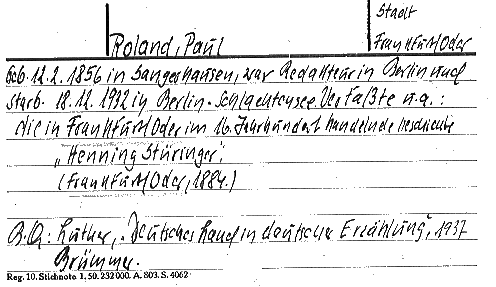 Stadt
Roland, Paul
Frankfurt/Oder
Geb. 12.2.1856 in Sangerhausen, war Redakteur in Berlin und
starb. 18.12.1912 in Berlin-Schlachtensee. Verfaßte u.a.:
die in Frankfurt/Oder im 16. Jahrhundert handelnde Geschichte
„Henning Stüringer",
(Frankfurt/Oder, 1884.)
B.Q: Luther, „Deutsches Land in deutscher Erzählung", 1937
Brümmer.
Reg. 10. Stichnote 1, 50. 232000. A. 803. S. 4062